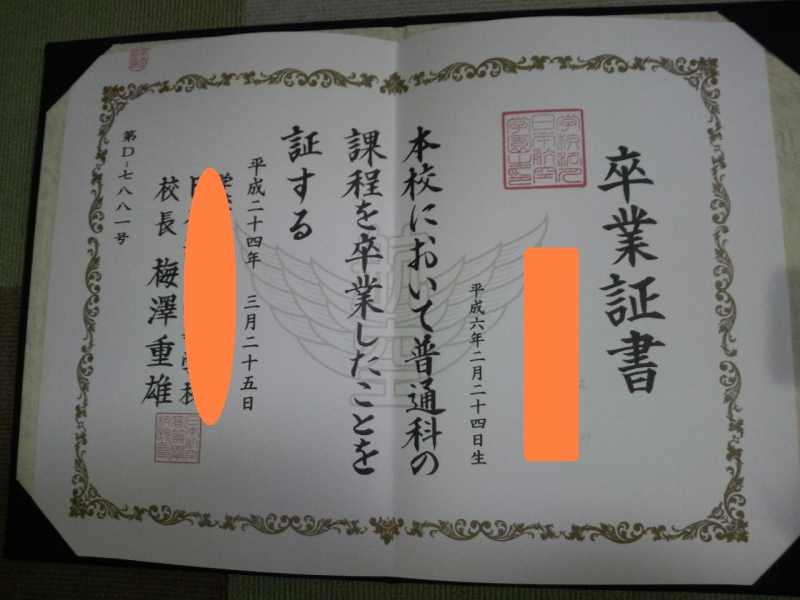 卒業証書
平成六年二月二十四日生
本校において普通科の
課程を卒業したことを
証する
平成二十四年 三月二十五日
校長 梅澤重雄
第D-七八八一号
航空